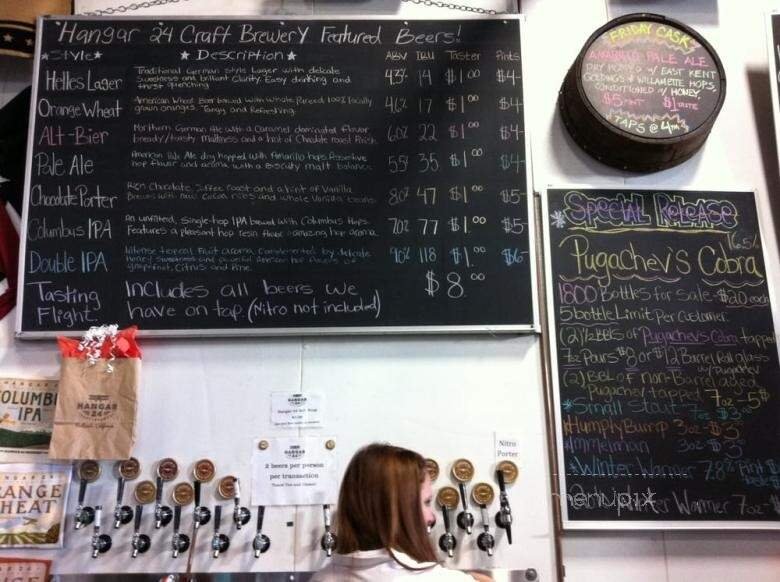 Hangar 24 Craft Brewery Featured Beers!
★Style★ ★Description★ ABV IBU Taster Pints
Helles Lager Traditional German Style Lager with delicate sweetness and brilliant clarity. Easy drinking and thirst quenching 14 $1.00 $4-
Orange Wheat American Wheat Beer brewed with Whole Pureed 100% locally grown oranges. Tangy and Refreshing. 17 $1.00 $4-
Alt-Bier Northern German Ale with a Caramel dominated flavor bready/toasty maltiness and a hint of Chocolate roast finish 22 $1.00 $4-
Pale Ale American Pale Ale dry hopped with Amarillo hops. Assertive hop flavor and aroma with a biscuity malt balance 35 $1.00 $4-
Chocolate Porter Rich Chocolate, Coffee roast and a hint of Vanilla 47 $1.00 $5-
Columbus IPA An unfiltered, single-hop IPA brewed with Columbus Hops. Features a pleasant hop resin flavor & amazing hop aroma 77 $1.00 $5-
Double IPA Intense tropical Fruit aroma, complemented by delicate grapefruit, Citrus and Pine 118 $1.00 $6-
Tasting Flight: Includes all beers we have on tap. (Nitro not included) $8.00
FRIDAY CASK
AMARILLO PALE ALE
DRY HOPPED W/ EAST KENT
GOLDINGS & WILLAMETTE HOPS,
CONDITIONED W/ HONEY
$5 PINT $1 TASTE
TAPS @ 4PM
Special Release
Pugachev's Cobra
1800 Bottles for Sale - $20 each
5 bottle Limit Per Customer.
(2) ½ BBLs of Pugachev's Cobra tapped
7oz Pours $8 or $12 Barrel Roll glass
w/ pugachev
(2) BBL of non-Barrel aged
Pugachev tapped 7oz - 5$
*Small Stout 7oz $3
*Humpty Bump 3oz $3
Immelman 3oz $3
*Winter Warmer
Winter Warmer 7oz
COLUMBUS
IPA
HANGAR
24
ORANGE
WHEAT
2 beers per person
per transaction
Nitro
Porter
menupix